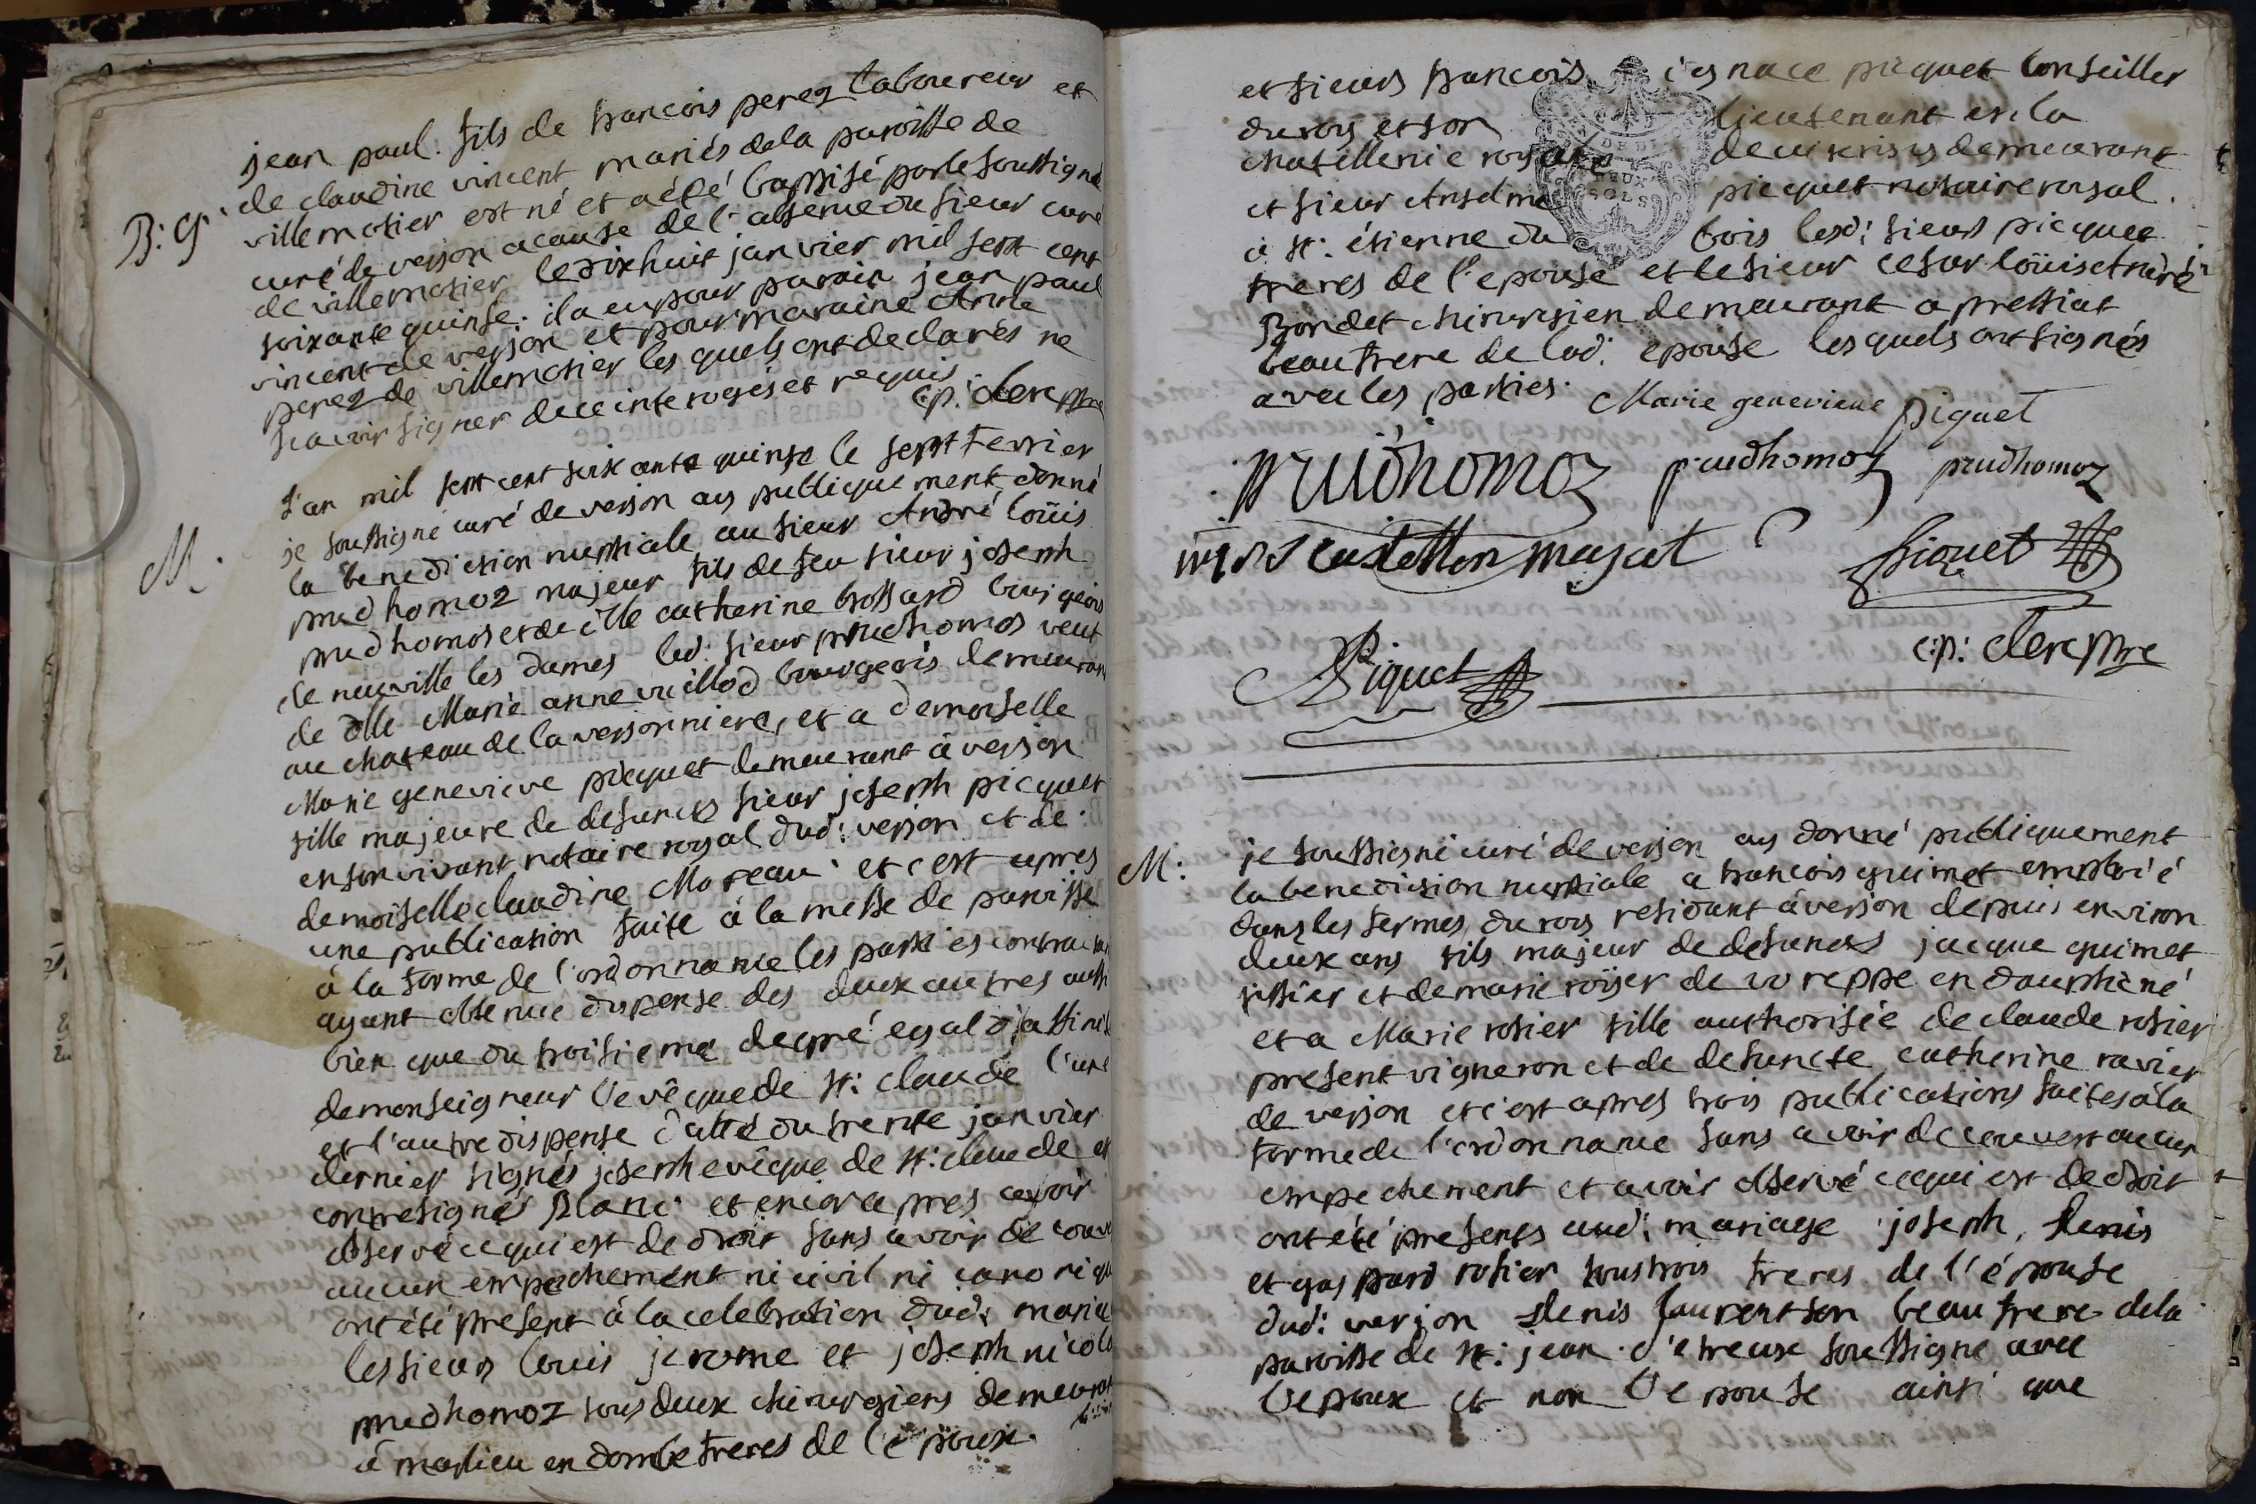 B: G.
jean paul. fils de francois perez laboureur et
de claudine vincent mariés dela paroisse de
villemotier est né et a été baptisé par le soussigné
curé de verjon a cause de l'absence du sieur curé
de villemotier le dixhuit janvier mil sept cent
soixante quinse. il a eu pour parain jean paul
vincent de verjon et pour maraine Anne
perez de villemotier les quels ont declarés ne
scavoir signer de ce interrogés et requis
c:p: clerc ptre
M.
L'an mil sept cent soixante quinse le sept fevrier
je soussigné curé de verjon ay publiquement donné
la benediction nuptiale au sieur André loüis
prudhomoz majeur fils de feu sieur joseph
prudhomoz et de dlle catherine brossard bourgeois
de neuville les dames led: sieur prudhomoz veuf
de dlle Marie anne vuillod bourgeois demeurant
au chateau de la verjonniere, et a demoiselle
Marie genevieve picquet demeurant à verjon
fille majeure de defuncts sieur joseph picquet
en son vivant notaire royal dud: verjon et de
demoiselle claudine Moreau. et c'est apres
une publication faite à la messe de paroisse
à la forme de l'ordonnance les parties contractan
ayant obtenue dispense des deux autres aussi
bien que du troisieme degré egal d'affinité
de monseigneur l'evêque de st: claude l'une
et l'autre dispense datté du trente janvier
dernier signés joseph evêque de st: claude et
contresignés Blanc. et encor apres avoir
observé ce qui est de droit sans avoir de couv
aucun empechement ni civil ni canoniqu
ont été present à la celebration dud: maria
les sieurs louis jerome et joseph nicola
prudhomoz tous deux chirurgiens demeurant
à marlieu en dombe freres de l'époux.
et sieurs francois ignace picquet conseiller
du roy et son lieutenant en la
chatellenie royale de demeurant
et sieur Anselme picquet notaire royal.
à st: étienne du bois lesd: sieurs picquet
freres de l'epouse et le sieur cesar loüis André
Bondet chirurgien demeurant a pressiat
beaufrere de lad: epouse lesquels ont signés
avec les parties.
Marie genevieve piquet
prudhomoz prudhomoz prudhomoz
castellon mayat
Piquet
Piquet
c:p: clerc ptre
M:
je soussigné curé de verjon ay donné publiquement
la benediction nuptiale a francois guimet emploié
dans les fermes du roy residant à verjon depuis environ
deux ans fils majeur de defuncts jacque guimet
et de marie roÿer de voreppe en dauphiné
et a Marie rosier fille authorisée de claude rosier
present vigneron et de defuncte catherine ravier
de verjon et c'est apres trois publications faites à la
forme de l'ordonnance sans avoir decouvert aucun
empechement et avoir observé ce qui est de droit
ont été presents aud: mariage joseph, denis
et gaspard rosier tous trois freres de l'épouse
dud: verjon denis laurent son beaufrere dela
paroisse de st: jean d'etreux soussigné avec
l'epoux et non l'epouse ainsi que